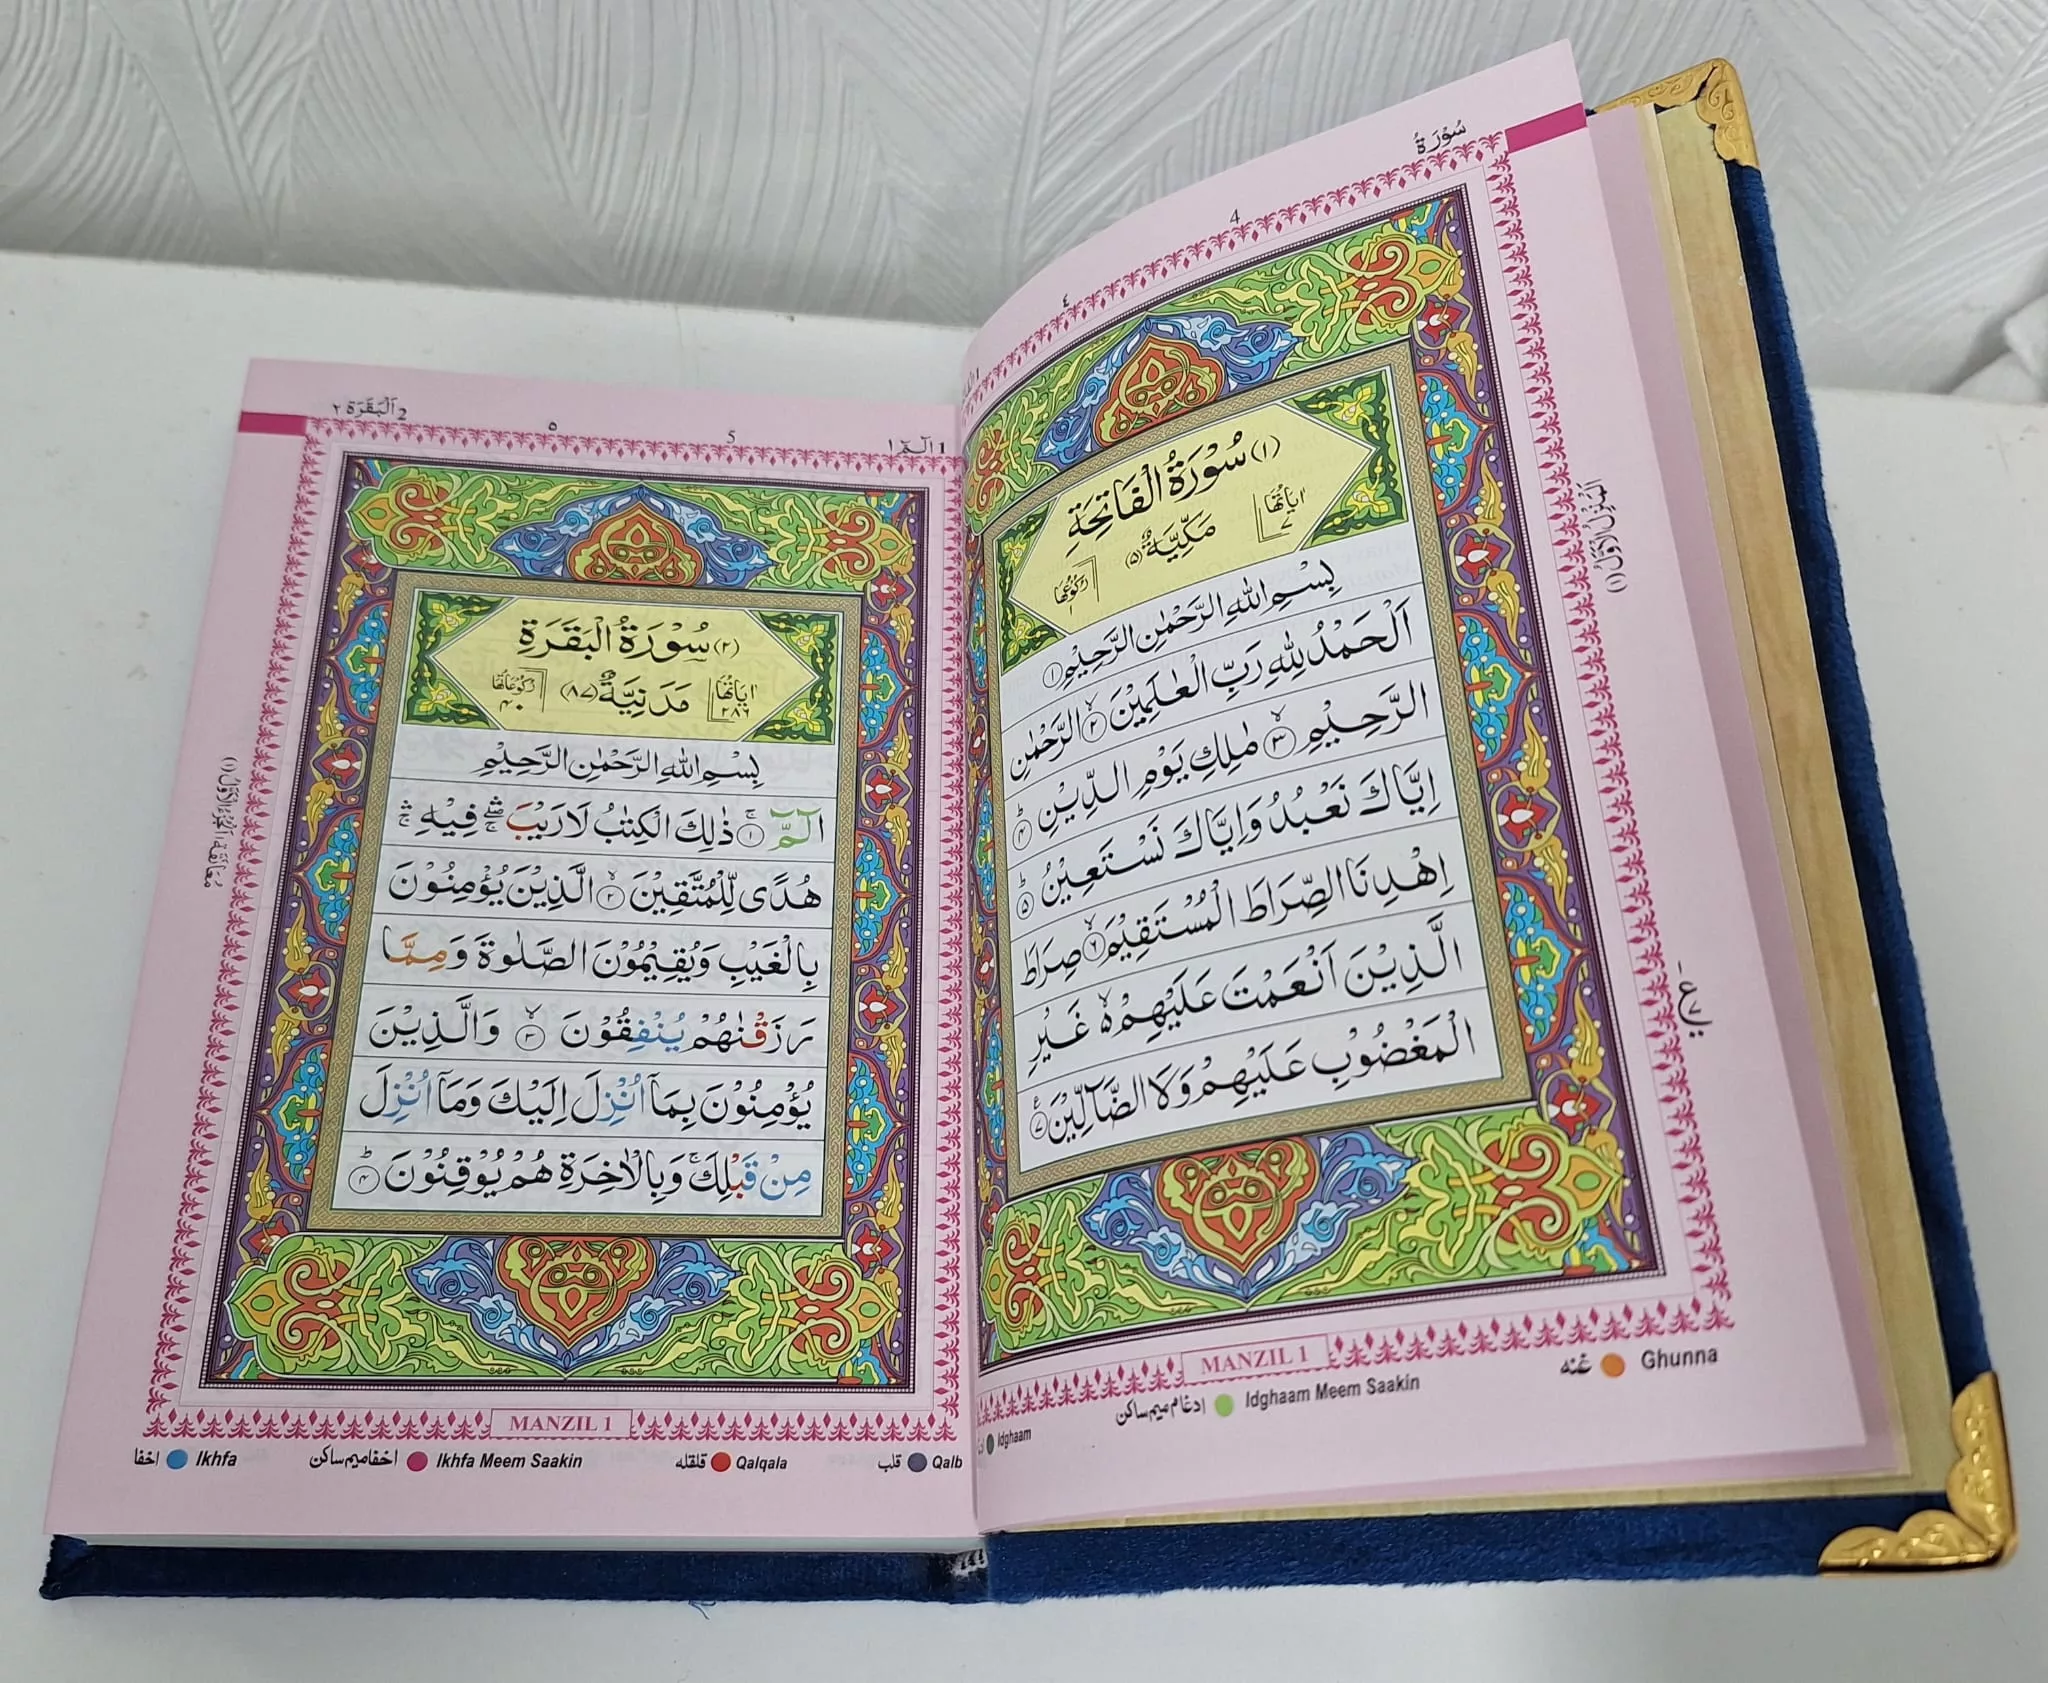 سُوْرَةُ
4
٤
(١) سُوْرَةُ الْفَاتِحَةِ
اٰيَاتُهَا ٧
مَكِّيَّةٌ (٥)
رُكُوْعُهَا ١
بِسْمِ اللّٰهِ الرَّحْمٰنِ الرَّحِيْمِ ﴿١﴾
اَلْحَمْدُ لِلّٰهِ رَبِّ الْعٰلَمِيْنَ ۙ﴿٢﴾ الرَّحْمٰنِ
الرَّحِيْمِ ۙ﴿٣﴾ مٰلِكِ يَوْمِ الدِّيْنِ ؕ﴿٤﴾
اِيَّاكَ نَعْبُدُ وَاِيَّاكَ نَسْتَعِيْنُ ؕ﴿٥﴾
اِهْدِنَا الصِّرَاطَ الْمُسْتَقِيْمَ ۙ﴿٦﴾ صِرَاطَ
الَّذِيْنَ اَنْعَمْتَ عَلَيْهِمْ ۙ۬ غَيْرِ
الْمَغْضُوْبِ عَلَيْهِمْ وَلَا الضَّآلِّيْنَ ﴿٧﴾
اَلْمَنْزِلُ الْاَوَّلُ (١)
ع
MANZIL 1
Ghunna غنه
Idghaam Meem Saakin ادغام میم ساکن
Idghaam
1 الٓمّٓ ١
5
٥
2 اَلْبَقَرَة ٢
(٢) سُوْرَةُ الْبَقَرَةِ
اٰيَاتُهَا ٢٨٦
مَدَنِيَّةٌ (٨٧)
رُكُوْعَاتُهَا ٤٠
بِسْمِ اللّٰهِ الرَّحْمٰنِ الرَّحِيْمِ
الٓمّٓ ۚ﴿١﴾ ذٰلِكَ الْكِتٰبُ لَا رَيْبَ ۛۖ فِيْهِ ۛۚ
هُدًى لِّلْمُتَّقِيْنَ ۙ﴿٢﴾ الَّذِيْنَ يُؤْمِنُوْنَ
بِالْغَيْبِ وَيُقِيْمُوْنَ الصَّلٰوةَ وَمِمَّا
رَزَقْنٰهُمْ يُنْفِقُوْنَ ۙ﴿٣﴾ وَالَّذِيْنَ
يُؤْمِنُوْنَ بِمَآ اُنْزِلَ اِلَيْكَ وَمَآ اُنْزِلَ
مِنْ قَبْلِكَ ۚ وَبِالْاٰخِرَةِ هُمْ يُوْقِنُوْنَ ؕ﴿٤﴾
مُعَانَقَة اَلْجُزْءُ الْاَوَّلُ (١)
MANZIL 1
Qalb قلب
Qalqala قلقله
Ikhfa Meem Saakin اخفا میم ساکن
Ikhfa اخفا